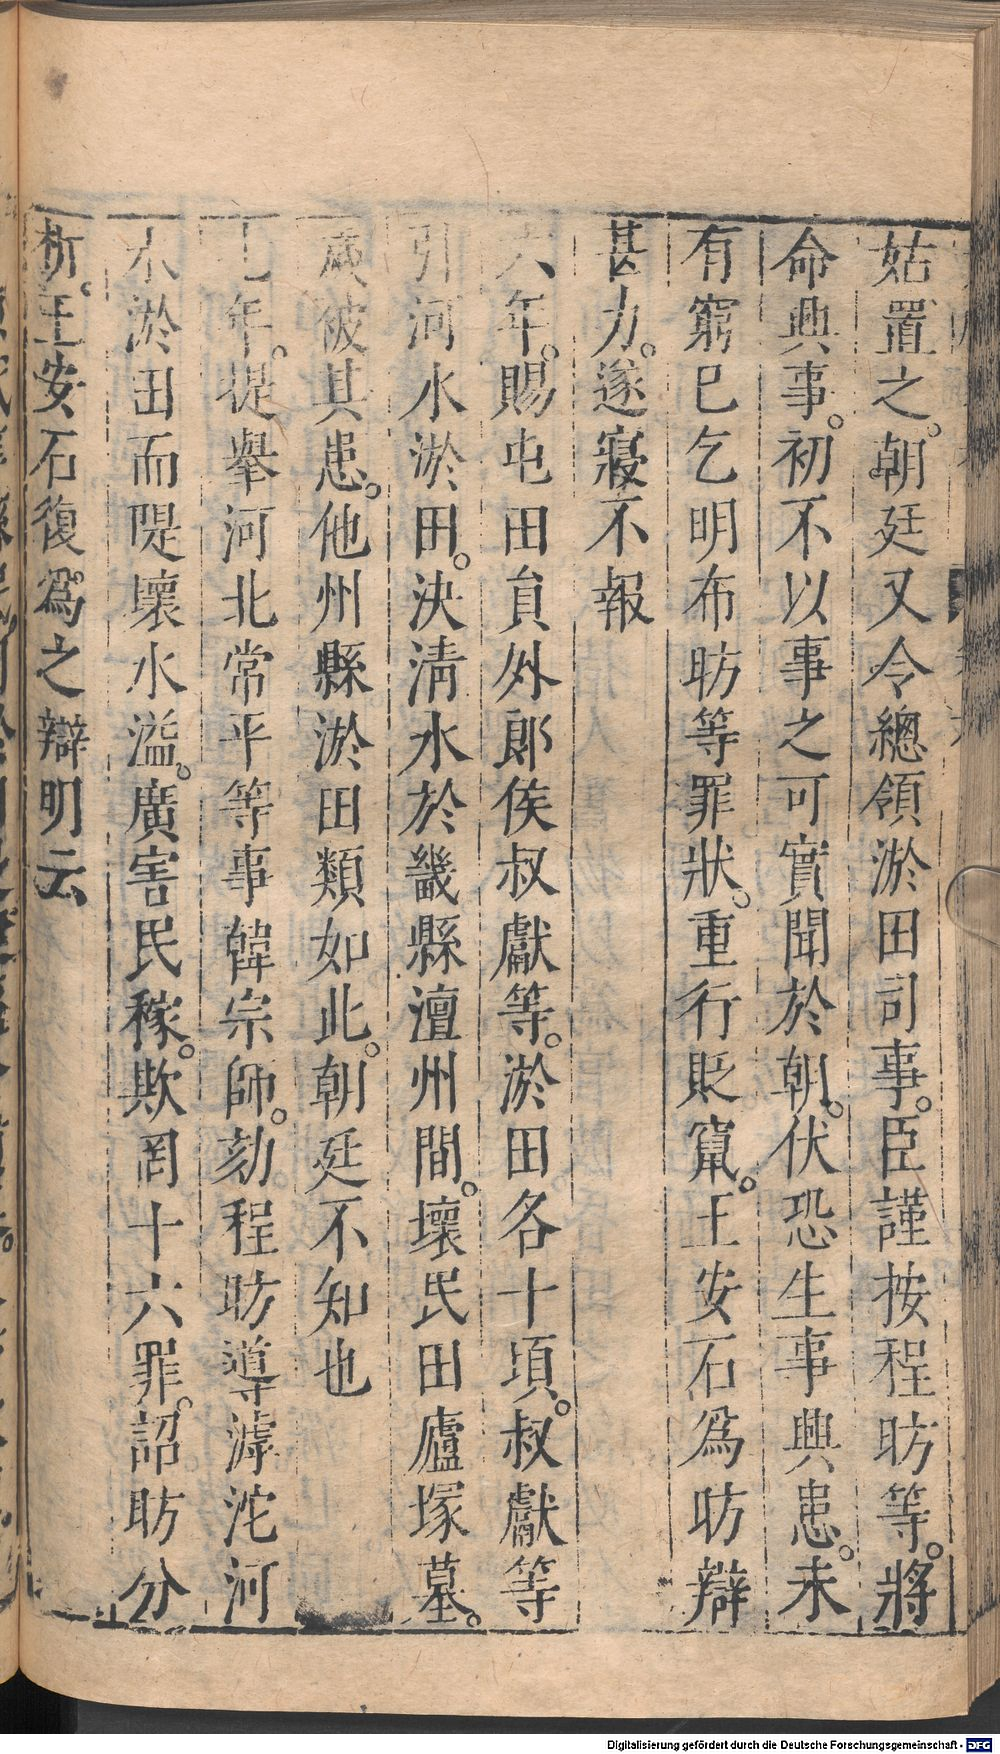 姑置之。朝廷又令總領淤田司事。臣謹按程昉等。將
命興事。初不以事之可實聞於朝。伏恐生事興患。未
有窮已乞明布昉等罪狀。重行貶竄。王安石爲昉辯
甚力。遂寢不報
六年。賜屯田員外郎侯叔獻等。淤田各十頃。叔獻等
引河水淤田。決清水於畿縣澶州間。壞民田廬塚墓。
歲被其患。他州縣淤田類如此。朝廷不知也
七年。提舉河北常平等事韓宗師。劾程昉導滹沱河
水淤田而隄壞水溢。廣害民稼。欺罔十六罪。詔昉分
析。王安石復爲之辯明云
Digitalisierung gefördert durch die Deutsche Forschungsgemeinschaft - DFG